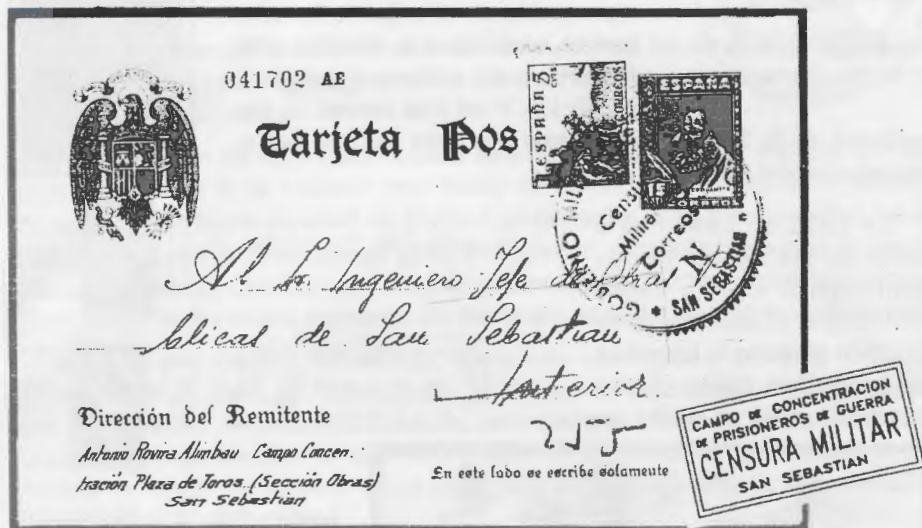 041702 AE
Tarjeta Pos
ESPAÑA
CORREOS
ESPAÑA
15
CERVANTES
CORREOS
GOBIERNO MILI
Censu
Militar
Correos
SAN SEBASTIAN
Al Sr. Ingeniero Jefe de Obras Pú
blicas de San Sebastian
Interior.
Dirección del Remitente
Antonio Rovira Alimbau Campo Concen.
tración Plaza de Toros. (Sección Obras)
San Sebastián
En este lado se escribe solamente
CAMPO DE CONCENTRACION
DE PRISIONEROS DE GUERRA
CENSURA MILITAR
SAN SEBASTIAN